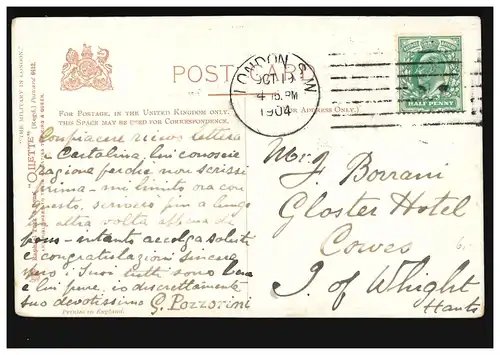 POST CARD
FOR POSTAGE, IN THE UNITED KINGDOM ONLY,
THIS SPACE MAY BE USED FOR CORRESPONDENCE.
ADDRESS ONLY.)
LONDON. S.W
OCT 11
4 15 PM
1904
HALF PENNY
"THE MILITARY IN LONDON."
"OILETTE" [Regd.] Postcard 6412.
Con piacere ricevo lettera
e Cartolina, lui conoscie
ragione perche non scrissi
prima - mi limito ora con
questo, scriverò più a lungo
altra volta appena
intanto accolga saluti
e congratulazioni sincere
Suoi tutti sono bene
e lui pure, io discrettamente
suo devotissimo G. Pozzorini
Printed in England.
Mr. J. Borrani
Gloster Hotel
Cowes
I of Whight
Hants